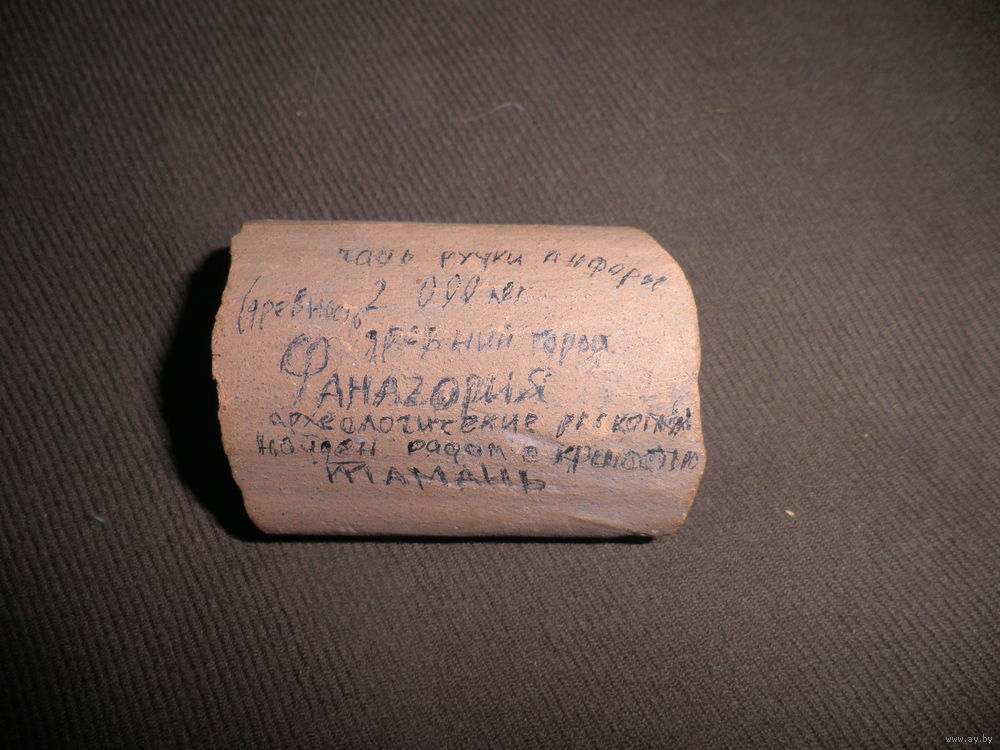 часть ручки амфоры
(древность 2 000 лет
древний город
ФАНАГОРИЯ
археологические раскопки
найден рядом с крепостью
ТАМАНЬ
www.ay.by